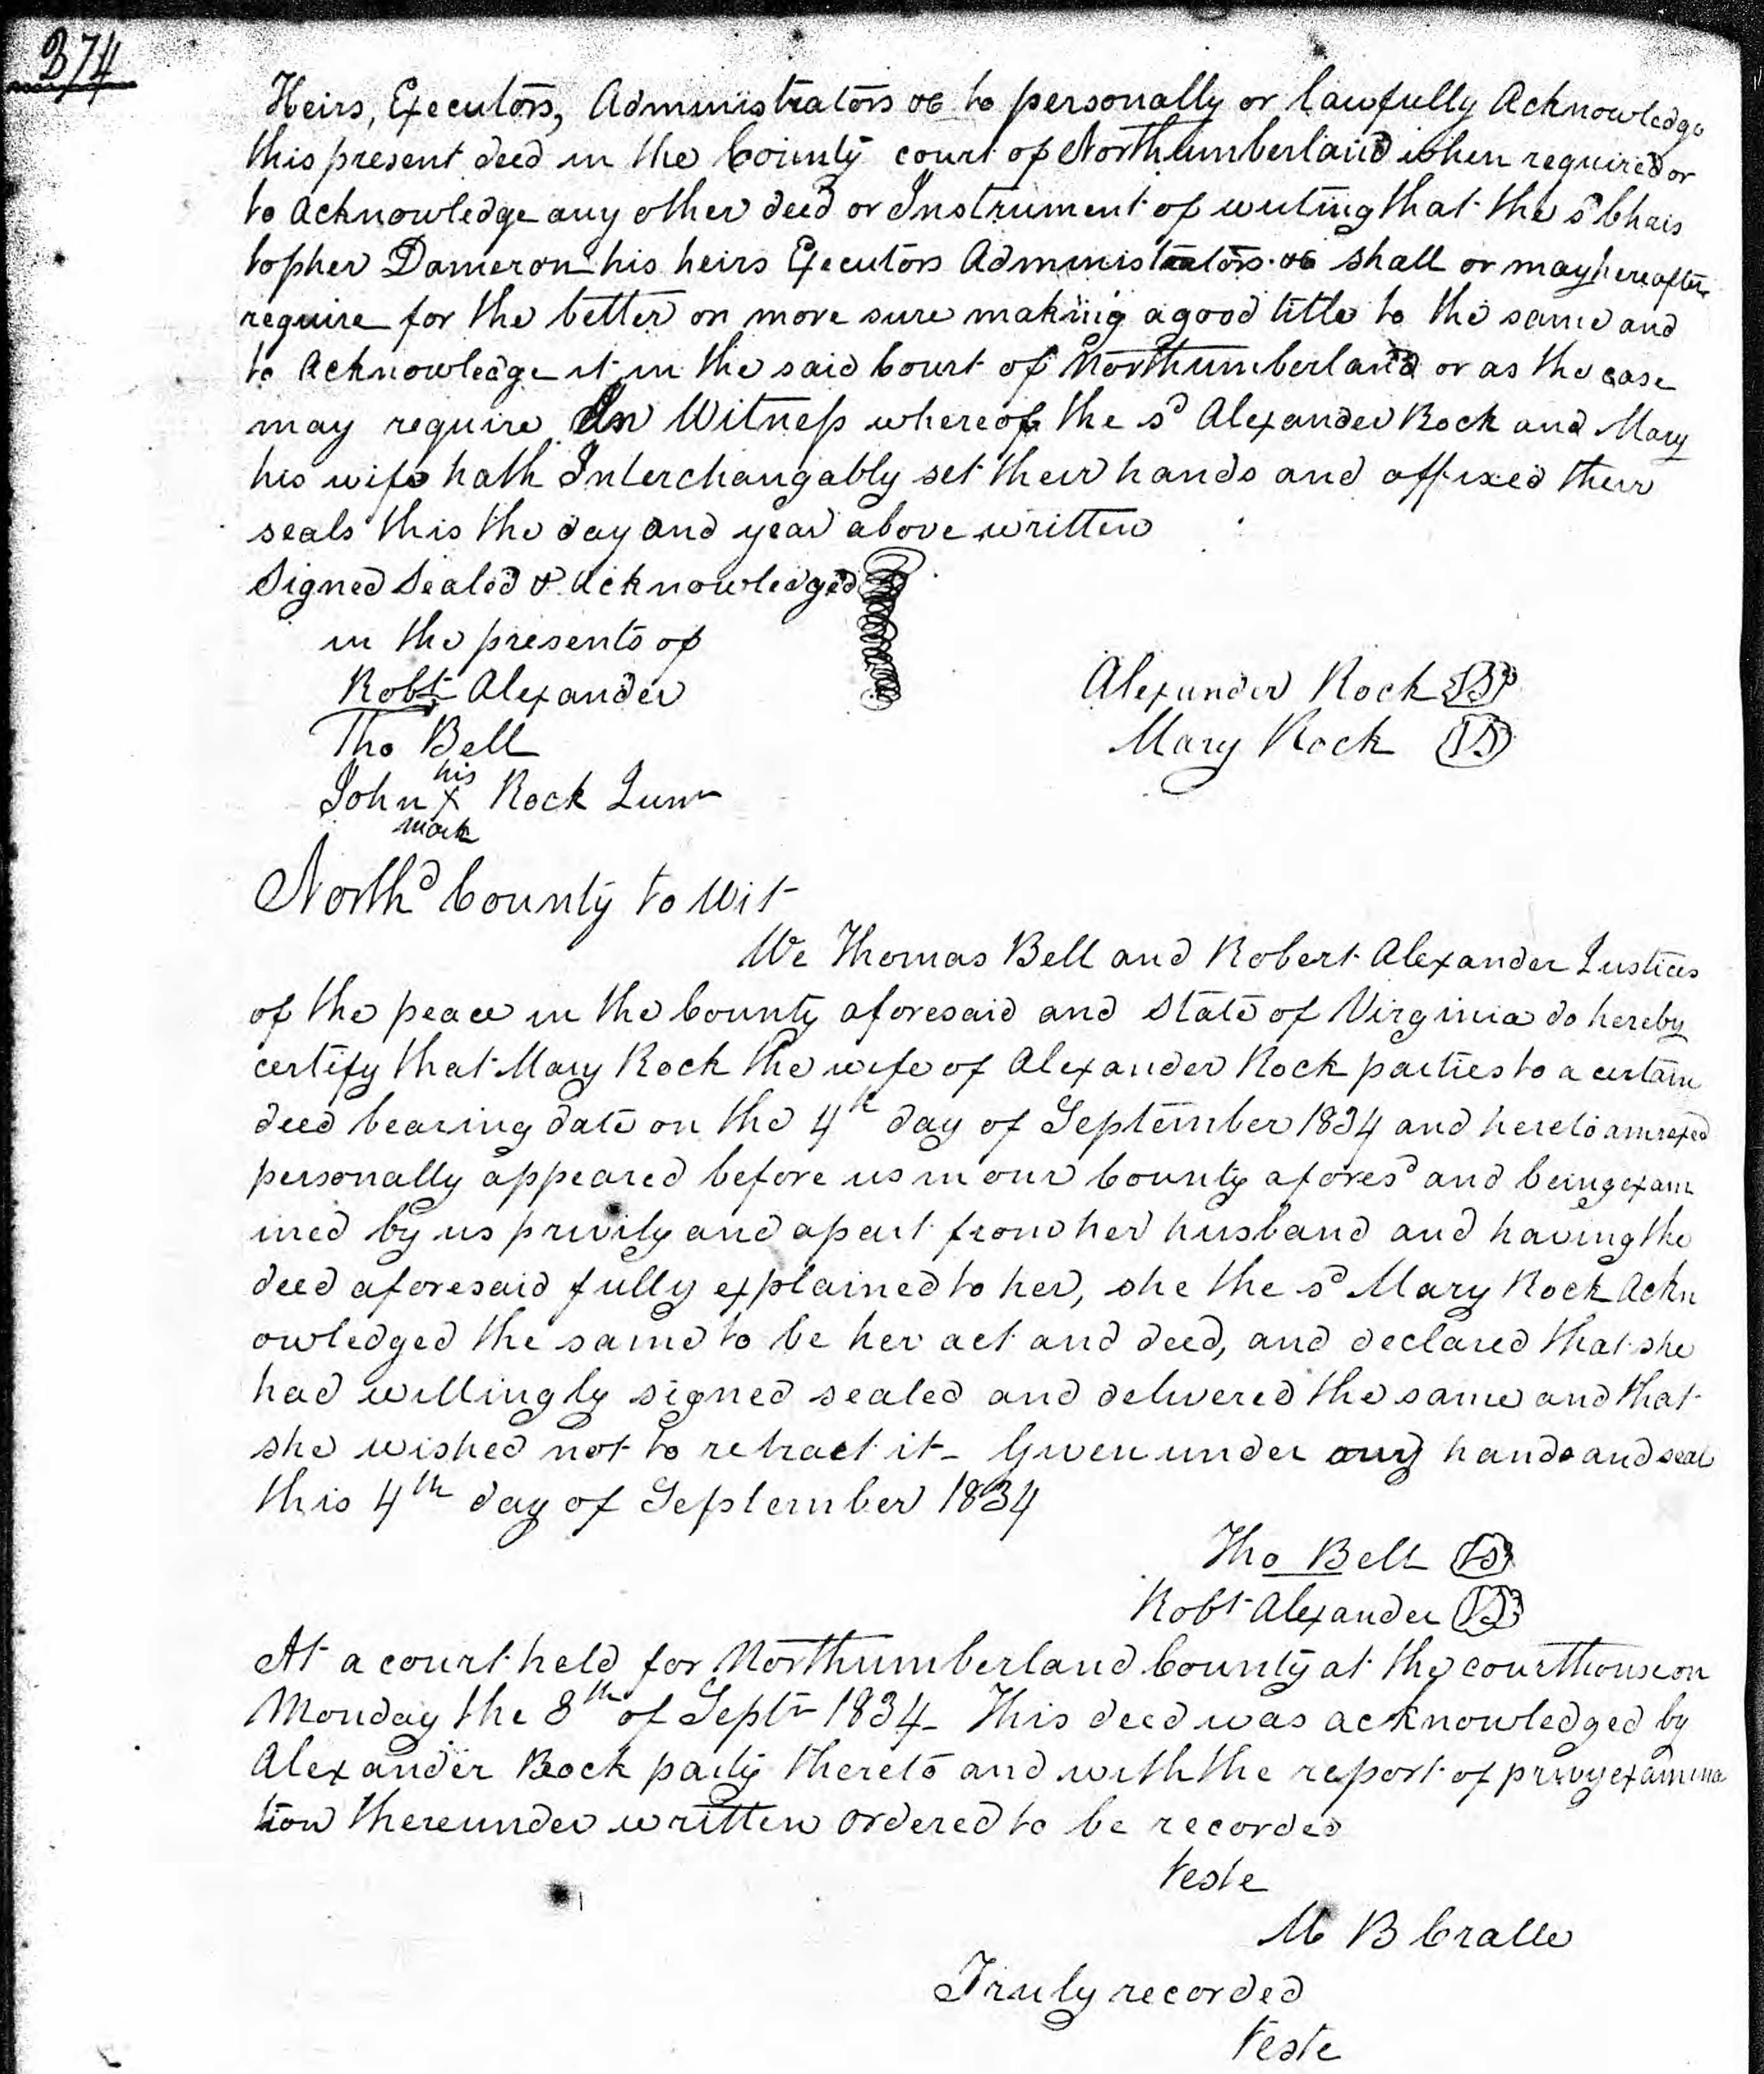 374
Heirs, Executors, Administrators &c to personally or lawfully Acknowledge
this present deed in the County court of Northumberland when required or
to Acknowledge any other deed or Instrument of writing that the sd Chris
topher Dameron his heirs Executors Administrators &c shall or may hereafter
require for the better or more sure making a good title to the same and
to Acknowledge it in the said Court of Northumberland or as the case
may require In Witness whereof the sd Alexander Rock and Mary
his wife hath Interchangably set their hands and affixed their
seals this the day and year above written
Signed Sealed & Acknowledged
in the presents of
Robt Alexander
Alexander Rock LS
Tho Bell
Mary Rock LS
his
John X Rock Junr
mark
Northd County to Wit
We Thomas Bell and Robert Alexander Justices
of the peace in the County aforesaid and State of Virginia do hereby
certify that Mary Rock the wife of Alexander Rock parties to a certain
deed bearing date on the 4th day of September 1834 and hereto annexed
personally appeared before us in our County aforesd and being exam
ined by us privily and apart from her husband and having the
deed aforesaid fully explained to her, she the sd Mary Rock Ackn
owledged the same to be her act and deed, and declared that she
had willingly signed sealed and delivered the same and that
she wished not to retract it - Given under our hands and seal
this 4th day of September 1834
Tho Bell LS
Robt Alexander LS
At a court held for Northumberland County at the courthouse on
Monday the 8th of Septr 1834 - This deed was acknowledged by
Alexander Rock party thereto and with the report of privy examina
tion thereunder written ordered to be recorded
Teste
M B Cralle
Truly recorded
Teste